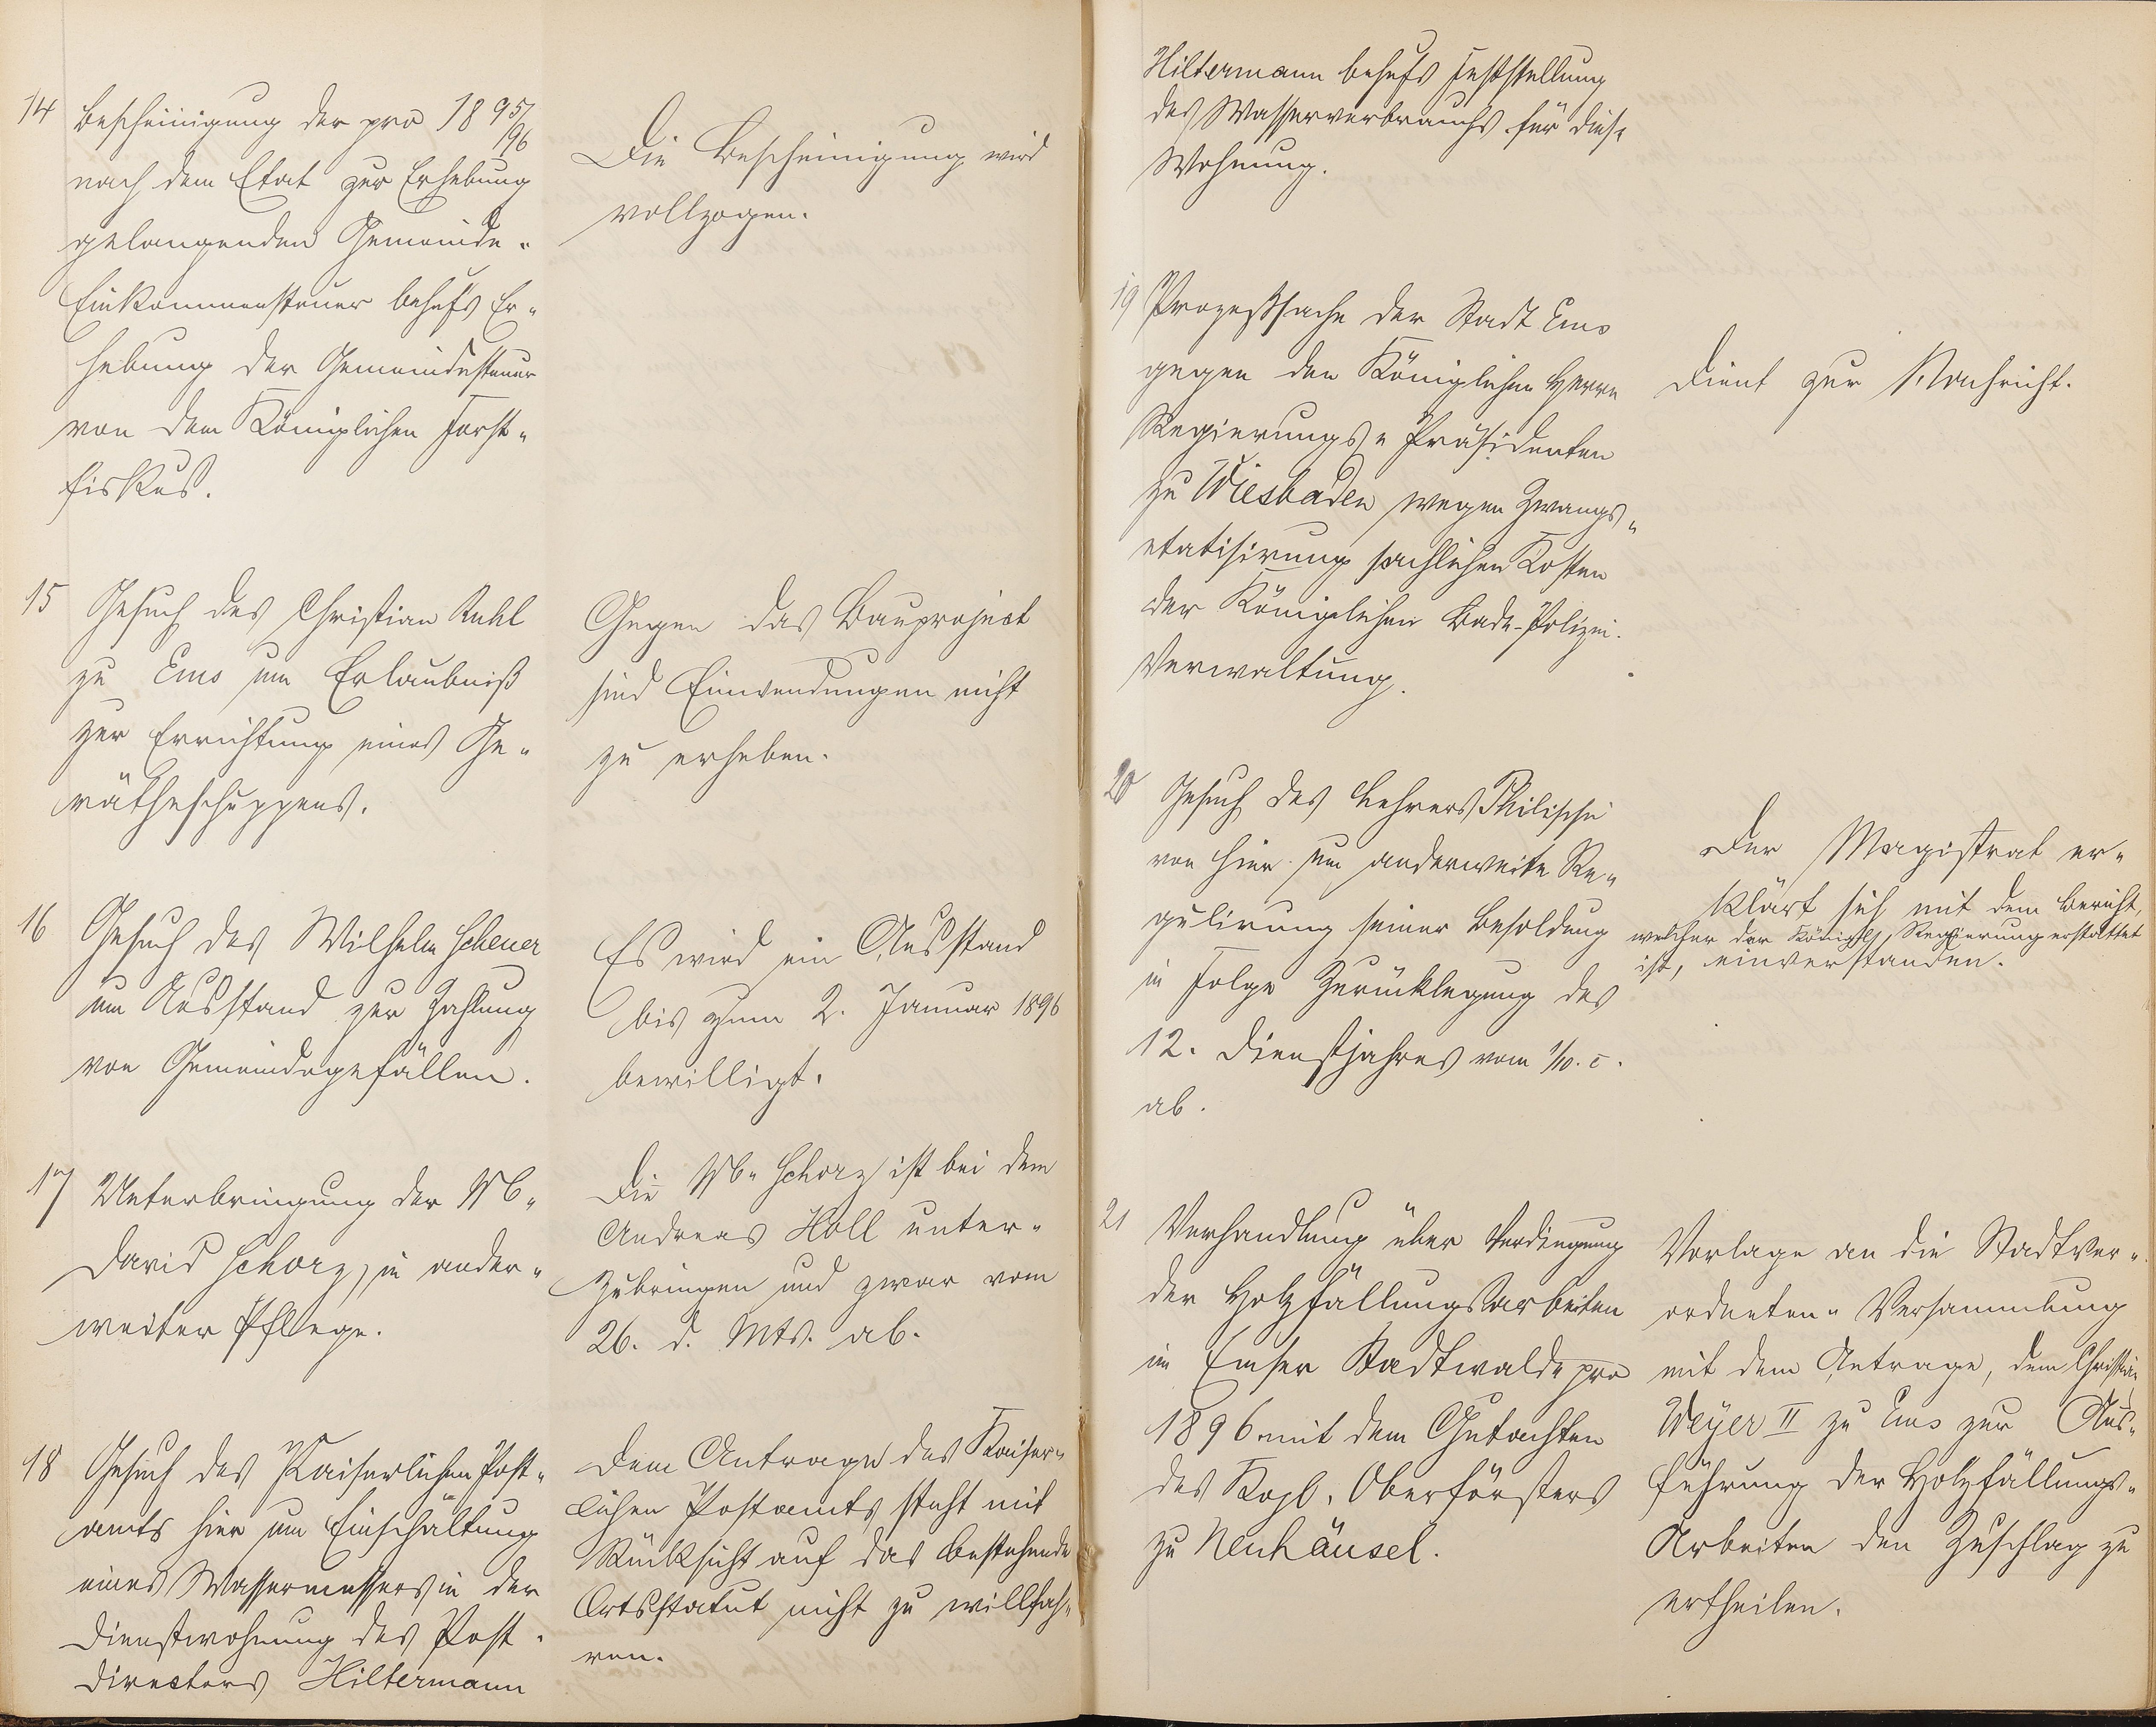 14 Bescheinigung der pro 1895/
96
nach dem Etat zur Erhebung
gelangenden Gemeinde-
Einkommensteuer behufs Er-
hebung der Gemeindesteuer
von dem Königlichen Forst-
fiskus.
Die Bescheinigung wird
vollzogen.
15 Gesuch des Christian Ruhl
zu Ems um Erlaubniß
zur Errichtung eines Ge-
rätheschuppens.
Gegen das Bauproject
sind Einwendungen nicht
zu erheben.
16 Gesuch des Wilhelm Scheuer
um Ausstand zur Zahlung
von Gemeindegefällen.
Es wird ein Ausstand
bis zum 2. Januar 1896
bewilligt.
17 Unterbringung der Wb.
David Schorz, in ander-
weiter Pflege.
Die Wb. Schorz ist bei dem
Andreas Holl unter-
zubringen und zwar vom
26. d. Mts. ab.
18 Gesuch des Kaiserlichen Post-
amts hier um Einschaltung
eines Wassermessers in der
Dienstwohnung des Post-
directors Hiltermann
Dem Antrage des Kaiser-
lichen Postamts steht mit
Rücksicht auf das bestehende
Ortsstatut nicht zu willfah-
ren.
Hiltermann behufs Feststellung
des Wasserverbrauchs für diese
Wohnung.
19 Prozeßsache der Stadt Ems
gegen den Königlichen Herrn
Regierungs-Präsidenten
zu Wiesbaden wegen Zwangs-
etatisirung sachlichen Kosten
der Königlichen Bade-Polizei-
Verwaltung.
Dient zur Nachricht.
20 Gesuch des Lehrers Philippi
von hier um anderweite Re-
gulirung seiner Besoldung
in Folge Zurücklegung des
12. Dienstjahres vom 1/10. c.
ab.
Der Magistrat er-
klärt sich mit dem Bericht,
welcher der Königl. Regierung erstattet
ist, einverstanden.
21 Verhandlung über Verdingung
der Holzfällungsarbeiten
im Emser Stadtwalde pro
1896 mit dem Gutachten
des Kgl. Oberförsters
zu Neuhäusel.
Vorlage an die Stadtver-
ordneten-Versammlung
mit dem Antrage, dem Christian
Weyer II zu Ems zur Aus-
führung der Holzfällungs-
Arbeiten den Zuschlag zu
ertheilen.